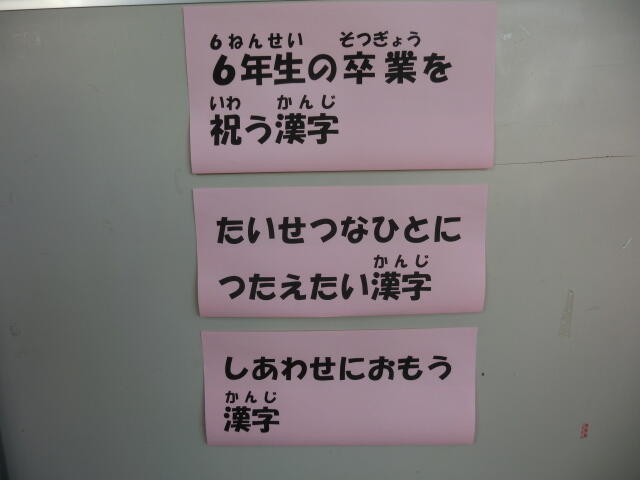 6ねんせい そつぎょう
6年生の卒業を
いわ かんじ
祝う漢字
たいせつなひとに
かんじ
つたえたい漢字
しあわせにおもう
かんじ
漢字